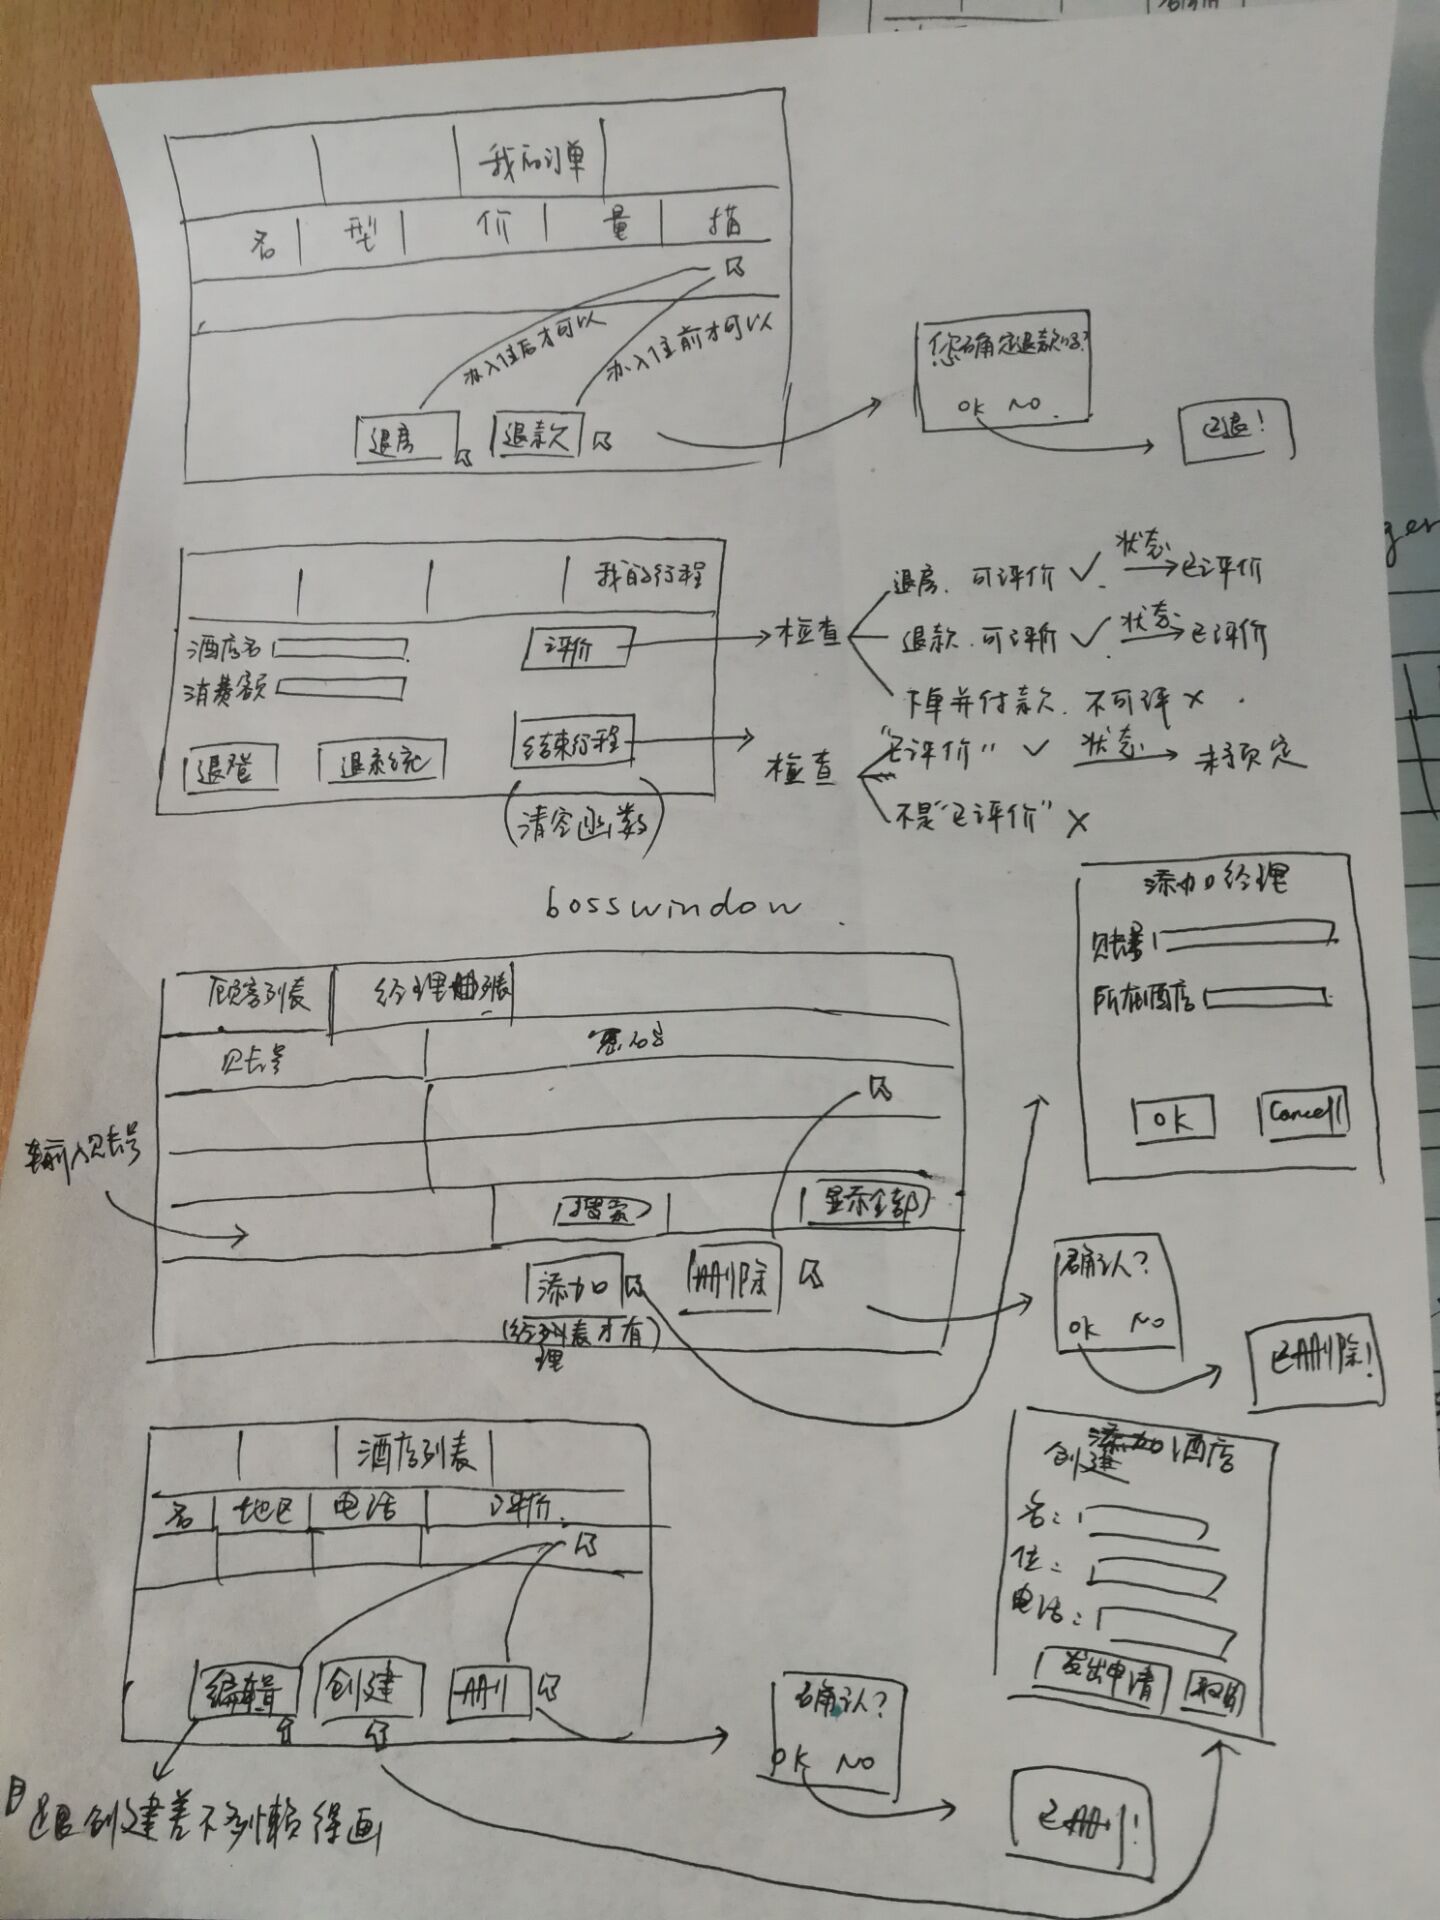 我的订单
名 型 价 量 描
办入住后才可以
办入住前才可以
退房 退款
您确定退款吗?
OK NO
已退!
我的行程
酒店名
消费额
评价
退登 退系统 结束行程
(清空函数)
检查
退房.可评价 ✓ 状态 已评价
退款.可评价 ✓ 状态 已评价
下单并付款.不可评 ×
检查
"已评价" ✓ 状态 未预定
不是"已评价" ×
bosswindow
顾客列表 经理列表
账号 密码
输入账号
搜索 显示全部
添加 删除
(经理列表才有)
添加经理
账号
所在酒店
OK Cancel
确认?
OK NO
已删除!
酒店列表
名 地区 电话 评价
编辑 创建 删
跟创建差不多懒得画
创建酒店
名:
位:
电话:
发出申请 取消
确认?
OK NO
已删!